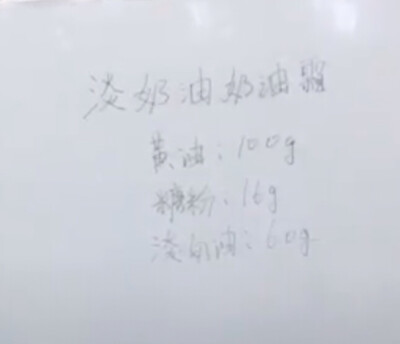 淡奶油奶油霜
黄油：100g
糖粉：16g
淡奶油：60g